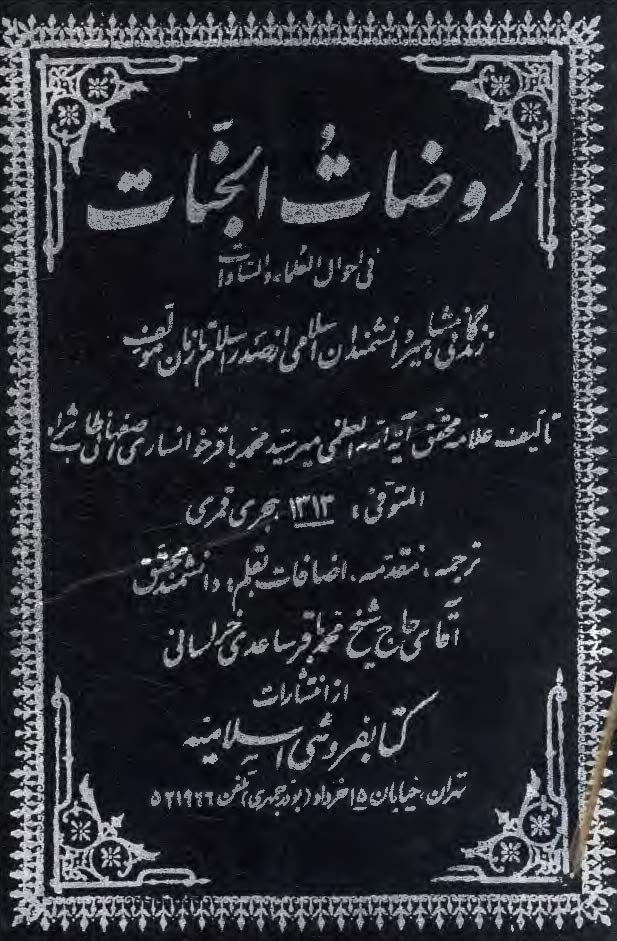 روضاتُ الجنّات
فی احوال العلماء والسادات
زندگانی مشاهیر دانشمندان اسلامی از صدر اسلام تا زمان مؤلف
تألیف علامه محقق آیة الله العظمی میر سید محمد باقر خوانساری اصفهانی طاب ثراه
المتوفی، ۱۳۱۳ هجری قمری
ترجمه، مقدمه، اضافات بقلم، دانشمند محقق
آقای حاج شیخ محمد باقر ساعدی خراسانی
از انتشارات
کتابفروشی اسلامیه
تهران، خیابان ۱۵ خرداد (بوذرجمهری) تلفن ۵۲۱۹۶۶